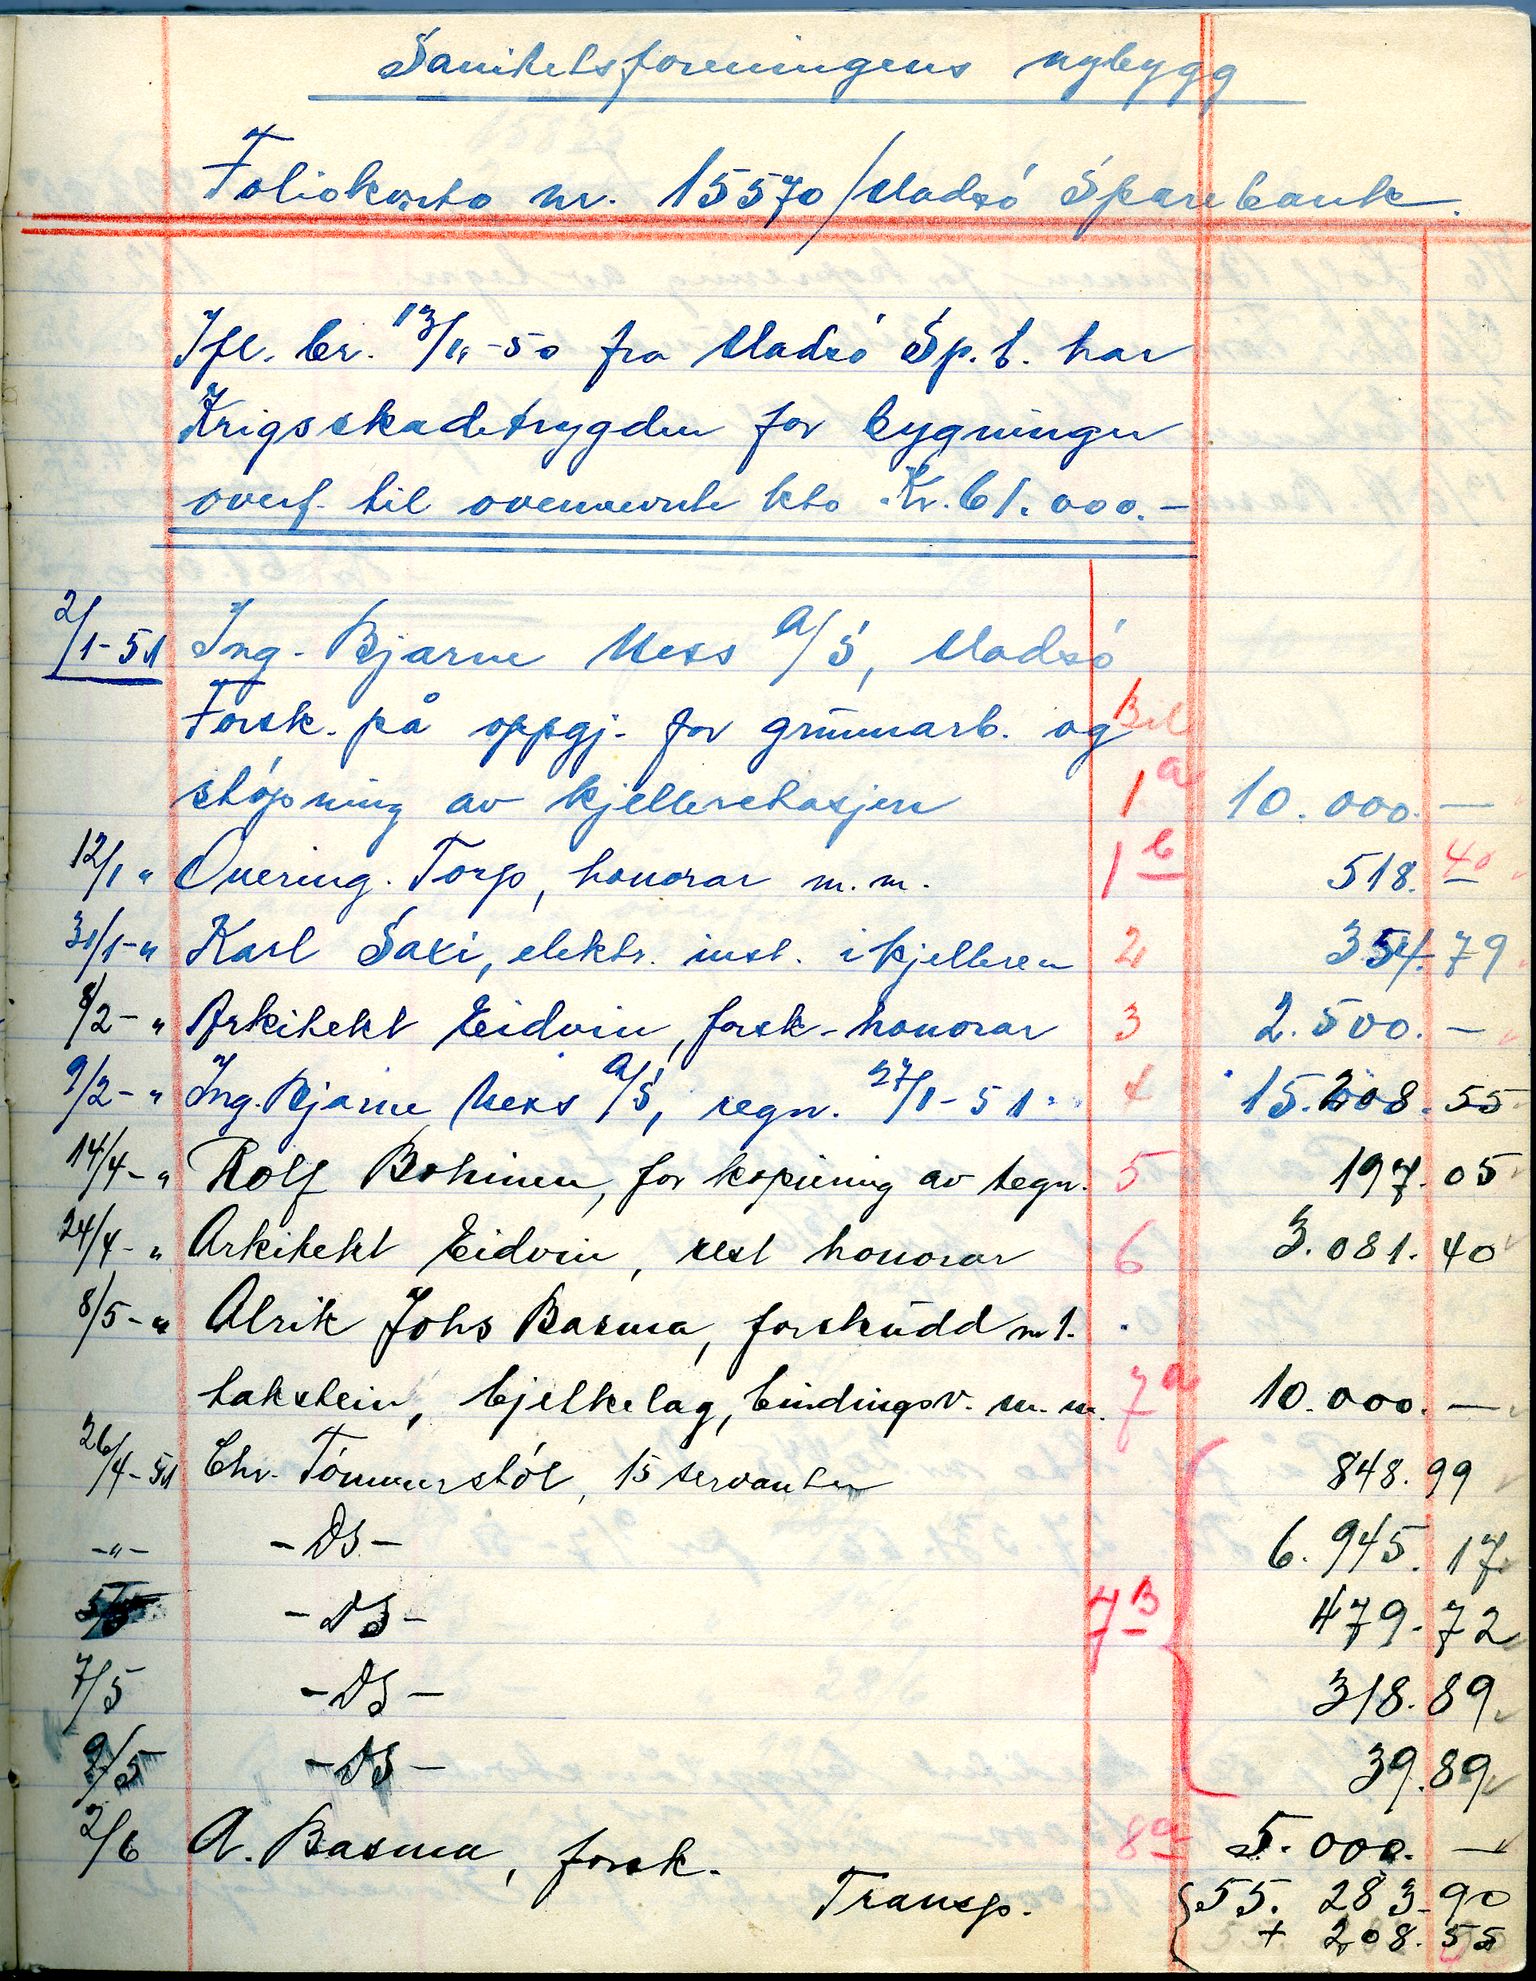 Sanitetsforeningens nybygg
Foliokonto nr. 15570/Vadsö Sparebank.
Ifl. br. 13/11-50 fra Vadsö Sp.b. har
Krigsskadetrygden for bygninger
overf. til ovennevnte kto. Kr. 61.000.-
2/1-51 Ing. Bjarne Ness A/S, Vadsö
Forsk. på oppgj. for grunnarb. og Bil
stöpning av kjelleretasjen 1a 10.000.—
12/1 " Overing. Torp, honorar m.m. 1b 518.40
31/1-" Karl Saxi, elektr. inst. i kjelleren 2 354.79
8/2-" Arkitekt Eidvin, forsk-honorar 3 2.500.—
9/2-" Ing. Bjarne Ness A/S, regn. 27/1-51 4 15.208.55
14/4-" Rolf Bohinen, for kopiering av tegn. 5 197.05
24/4-" Arkitekt Eidvin, rest honorar 6 3.081.40
8/5-" Alrik Johs Basma, forskudd m 1.
takstein, bjelkelag, bindingsv. m.m. 7a 10.000.—
26/4-51 Chr. Tömmerstöl, 15 servanter 848.99
-"- -DS- 6.945.17
-DS- 7B 479.72
7/5 -DS- 318.89
9/5 -DS- 39.89
2/6 A. Basma, forsk. 8a 5.000.—
Transp. 55.283.90
+ 208.55